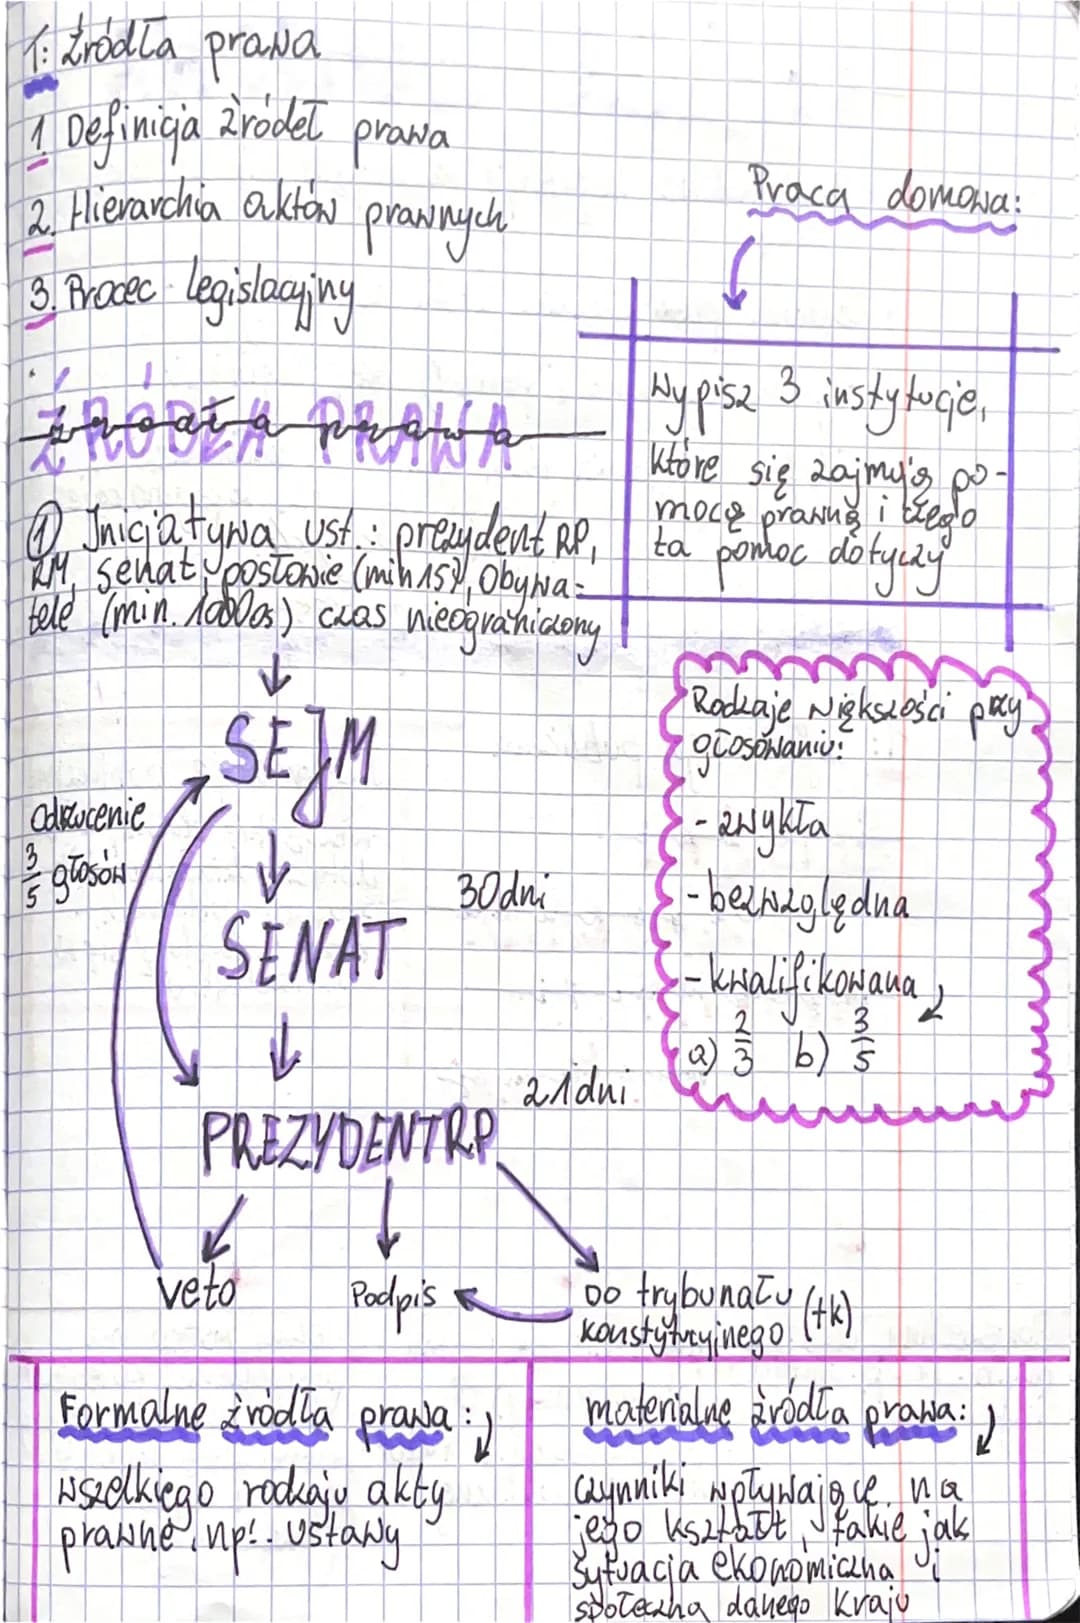 T: źródła prawa
1. Definicja źródeł prawa
2. Hierarchia aktów prawnych
3. Procec legislacyjny
Praca domowa:
Wypisz 3 instytucje,
które się zajmują po-
mocą prawną i czego
ta pomoc dotyczy
ŹRÓDŁA PRAWA
źródła prawa
① Inicjatywa ust.: prezydent RP,
RM, senat, posłowie (min 15), Obywa-
tele (min. 1000os) czas nieograniczony
SEJM
Odrzucenie
3/5 głosów
30dni
SENAT
21dni
PREZYDENT RP
veto
Podpis
Do trybunału
konstytucyjnego (tk)
Rodzaje większości przy
głosowaniu:
- zwykła
- bezwzględna
- kwalifikowana
a) 2/3 b) 3/5
Formalne źródła prawa:
wszelkiego rodzaju akty
prawne, np.: ustawy
materialne źródła prawa:
czynniki wpływające na
jego kształt, takie jak
sytuacja ekonomiczna i
społeczna danego kraju